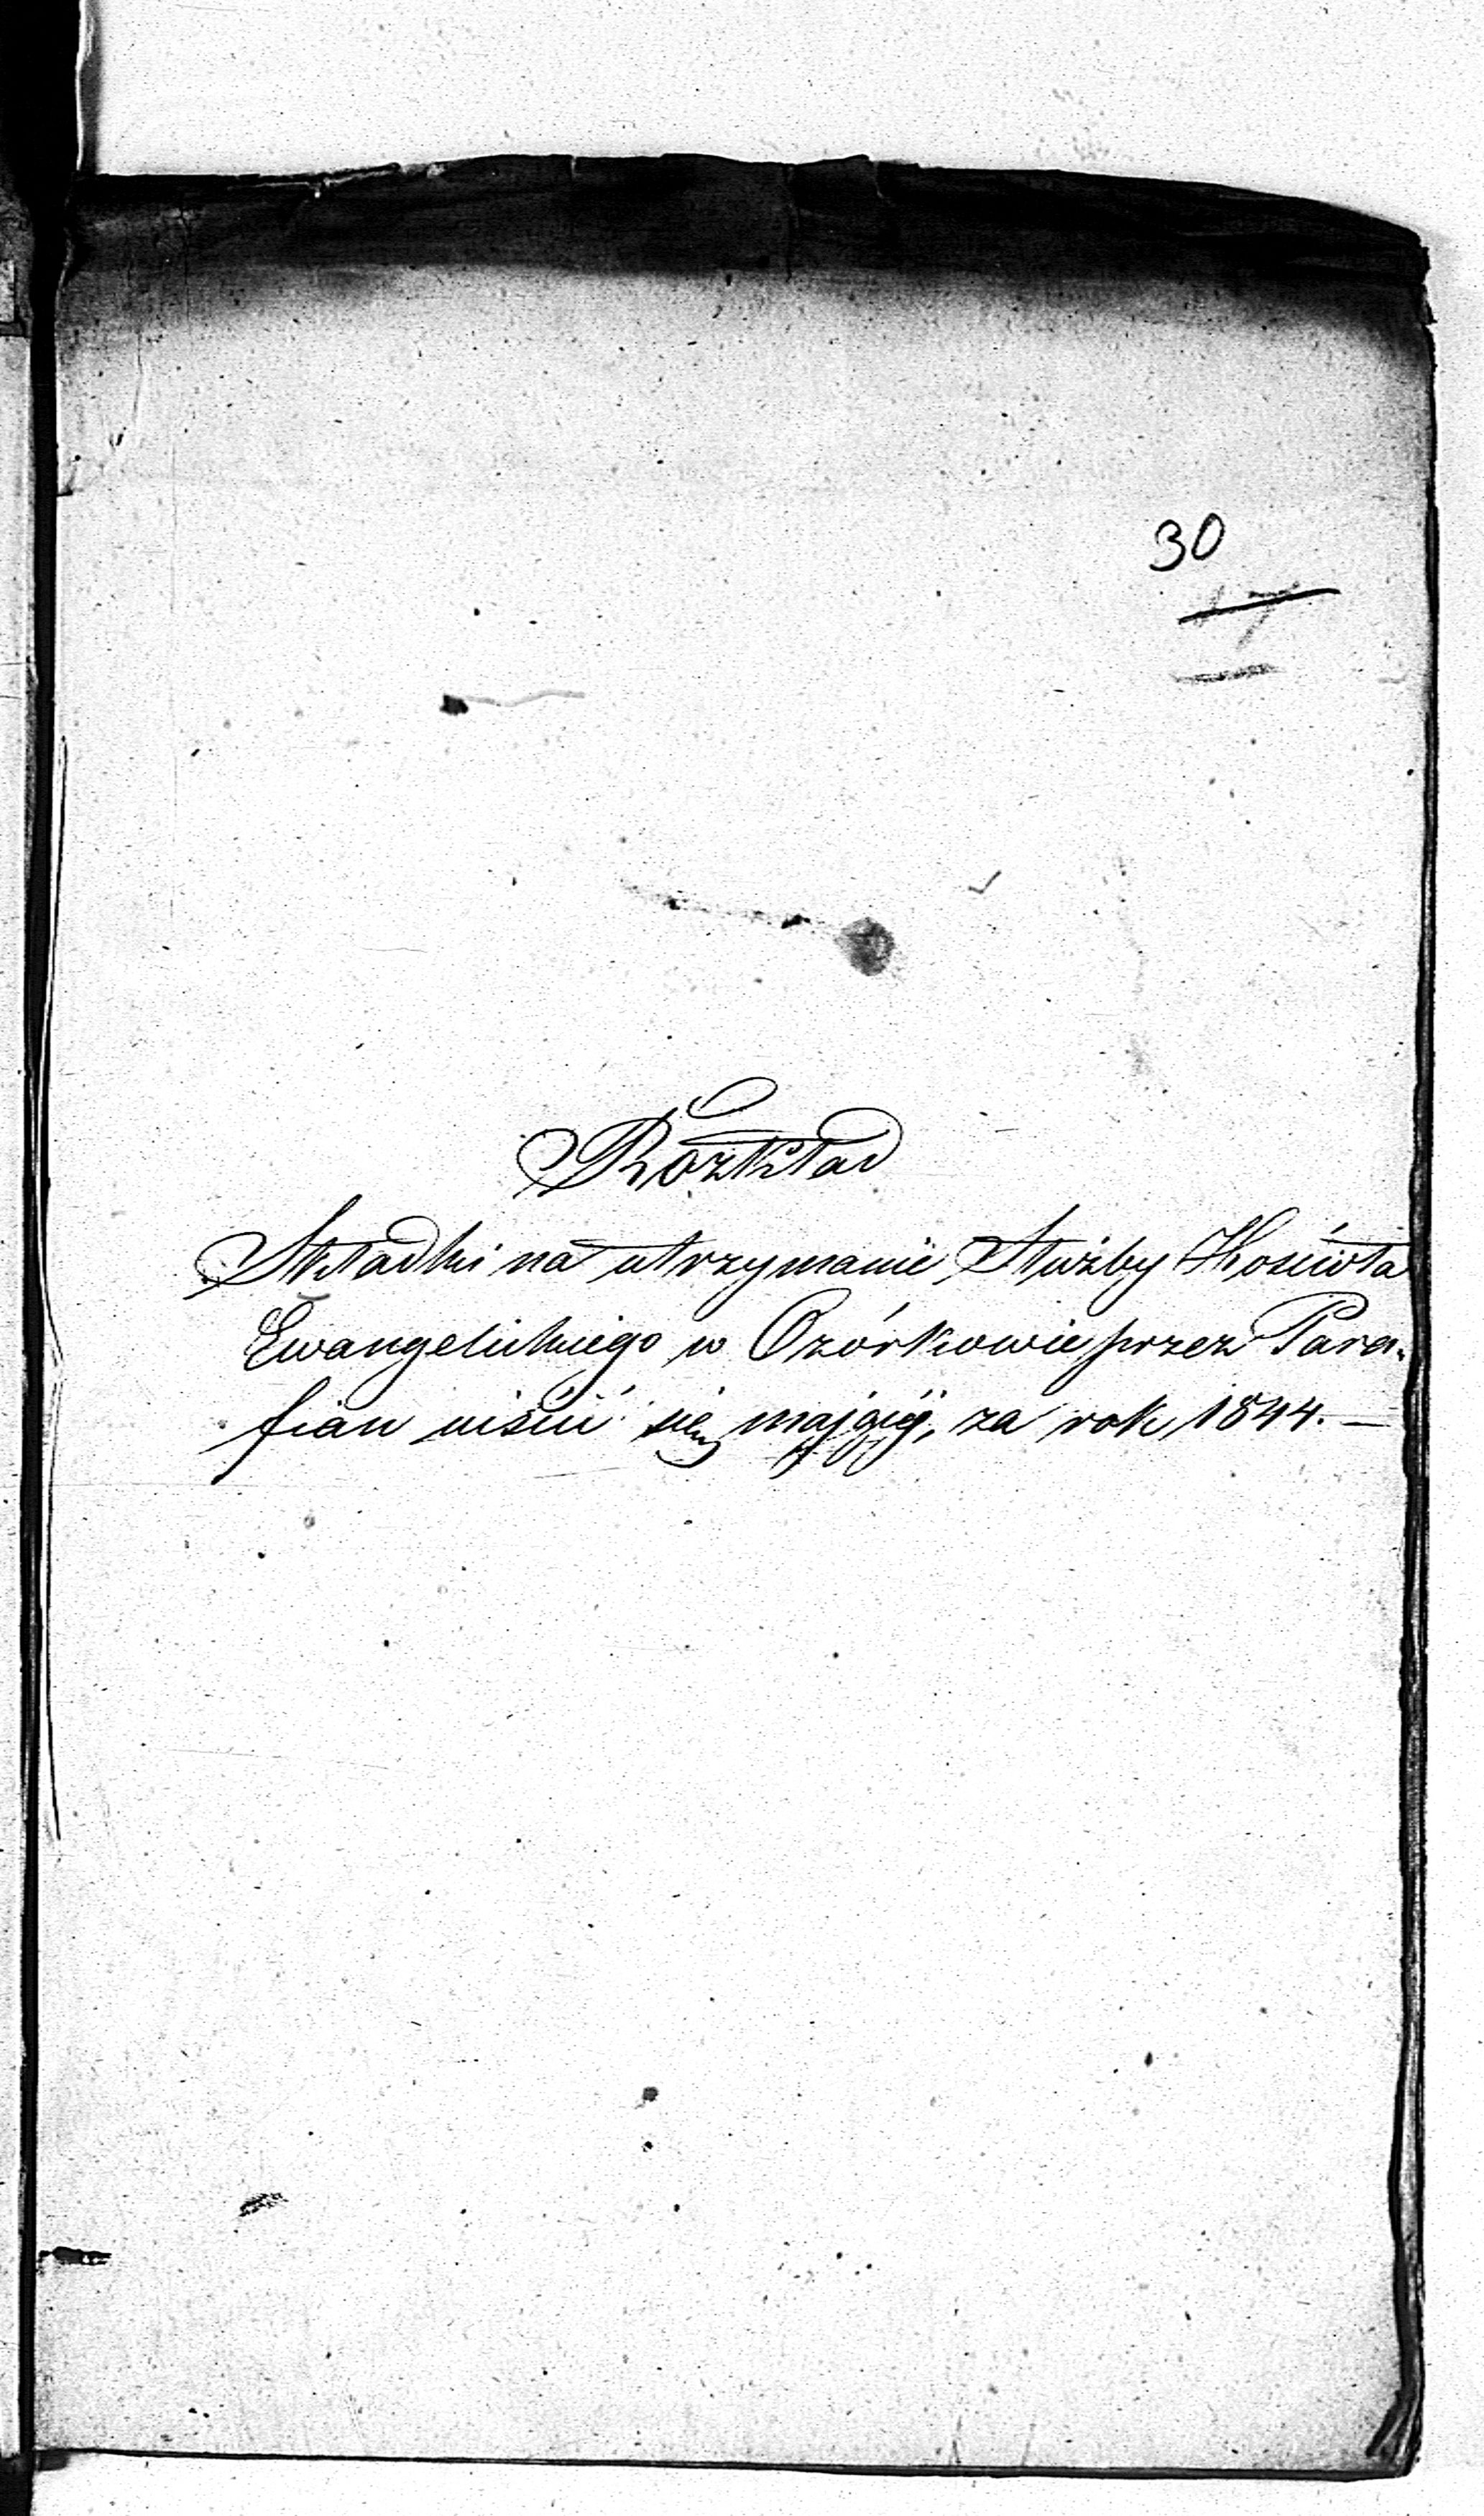 30
17
Rozkład
Składki na utrzymanie Służby Kościoła
Ewangelickiego w Ozórkowie przez Para-
fian uiścić się mającéj, za rok 1844. —